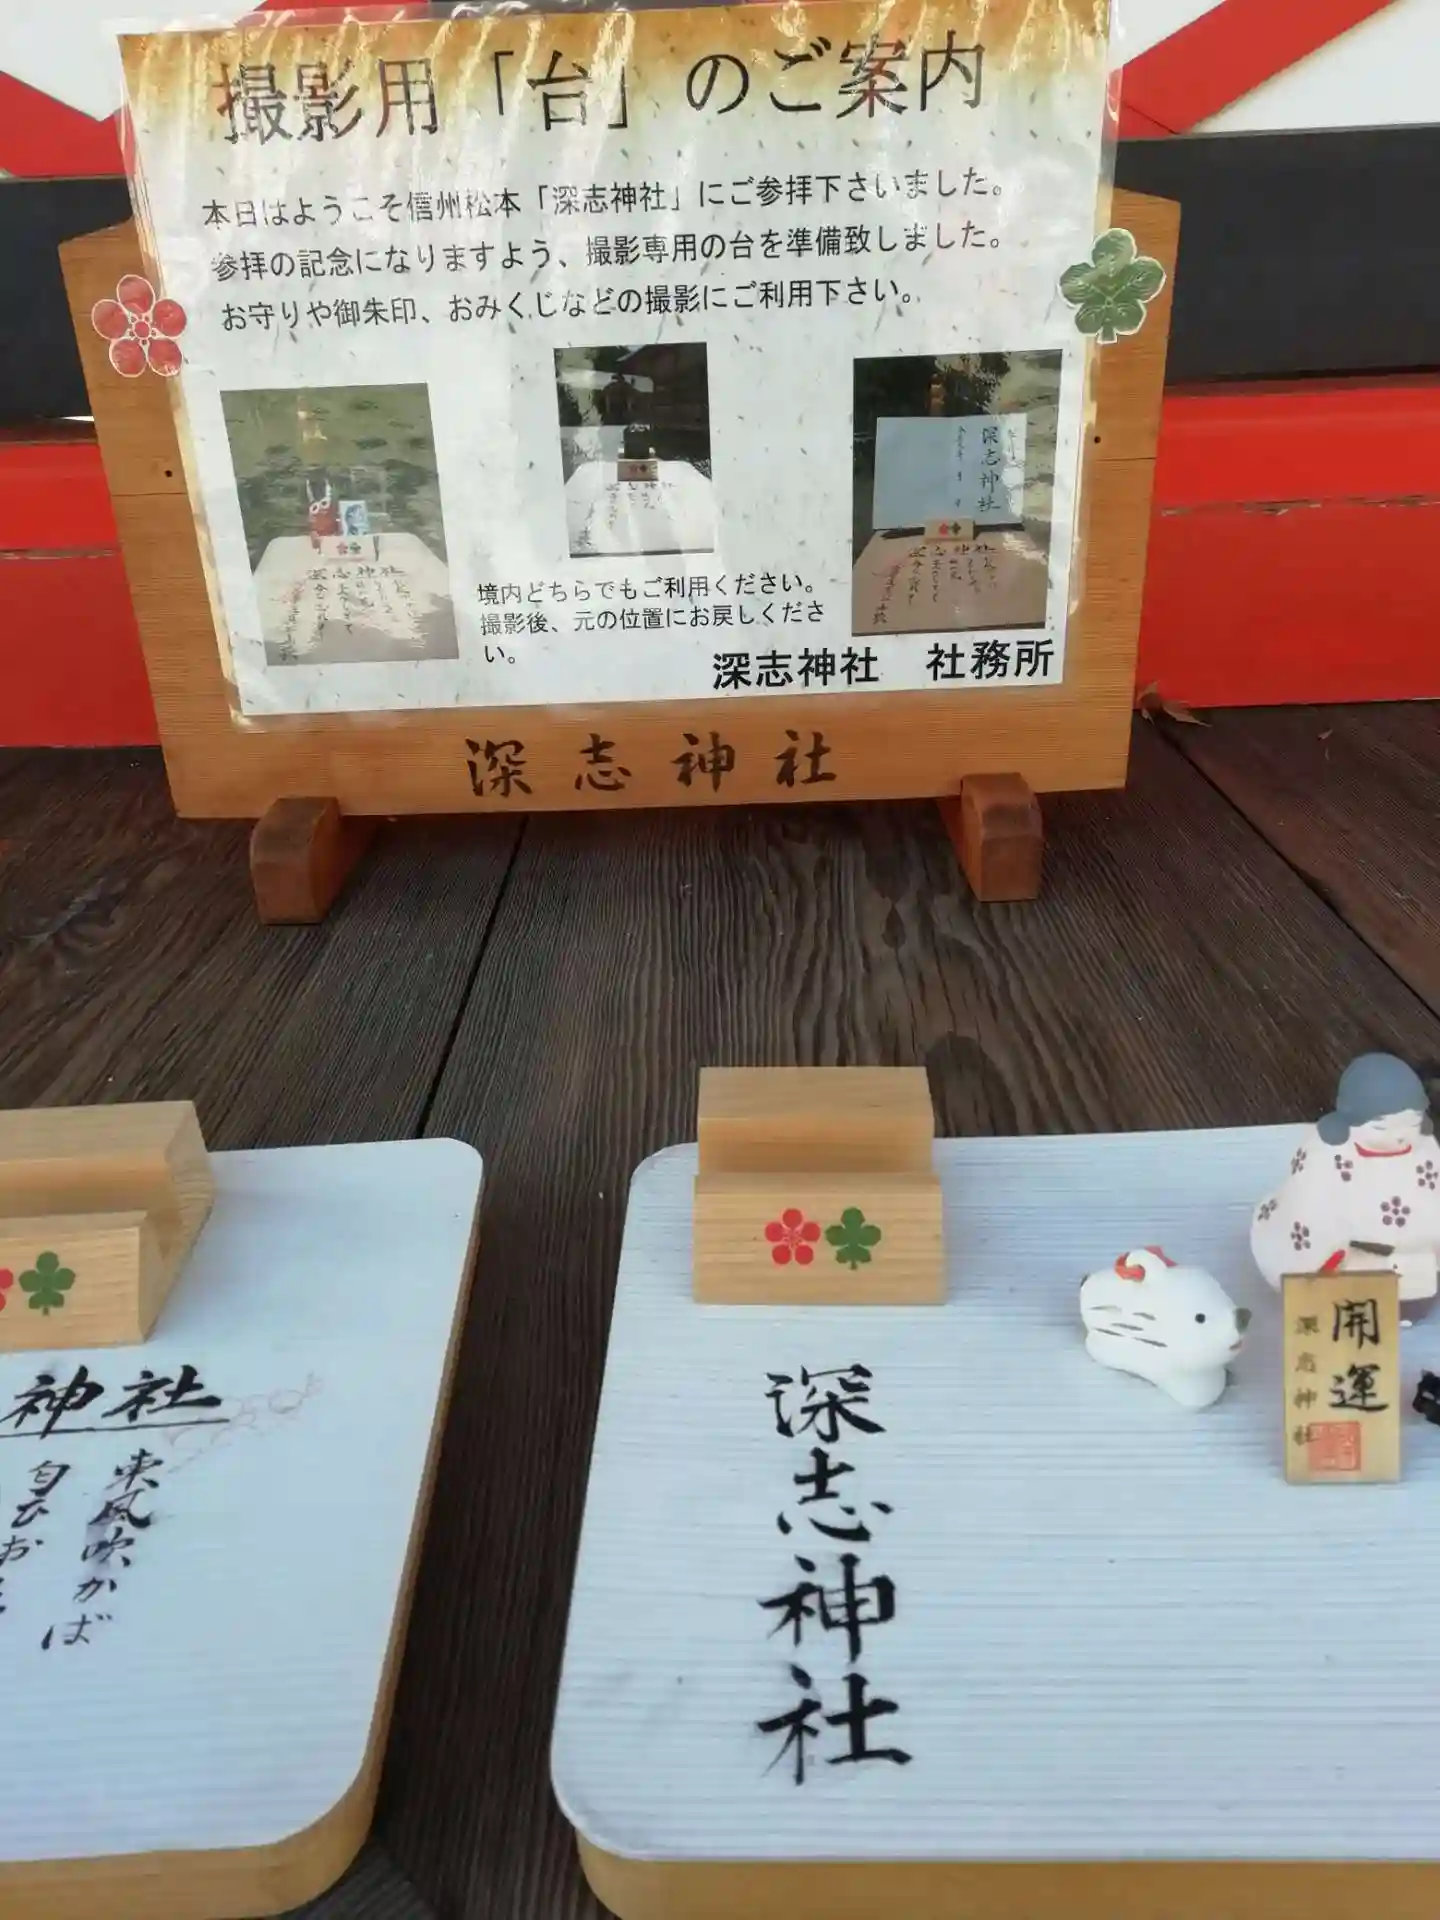 撮影用「台」のご案内
本日はようこそ信州松本「深志神社」にご参拝下さいました。
参拝の記念になりますよう、撮影専用の台を準備致しました。
お守りや御朱印、おみくじなどの撮影にご利用下さい。
深志神社
境内どちらでもご利用ください。
撮影後、元の位置にお戻しくださ
い。
深志神社 社務所
深志神社
神社
東風吹かば
匂ひお
深志神社
開運
深志神社